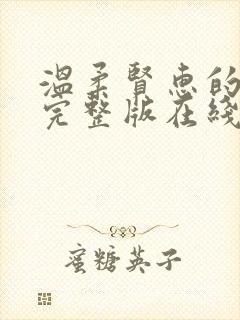 溫柔賢惠的
完整版在綫
蜜糖英子